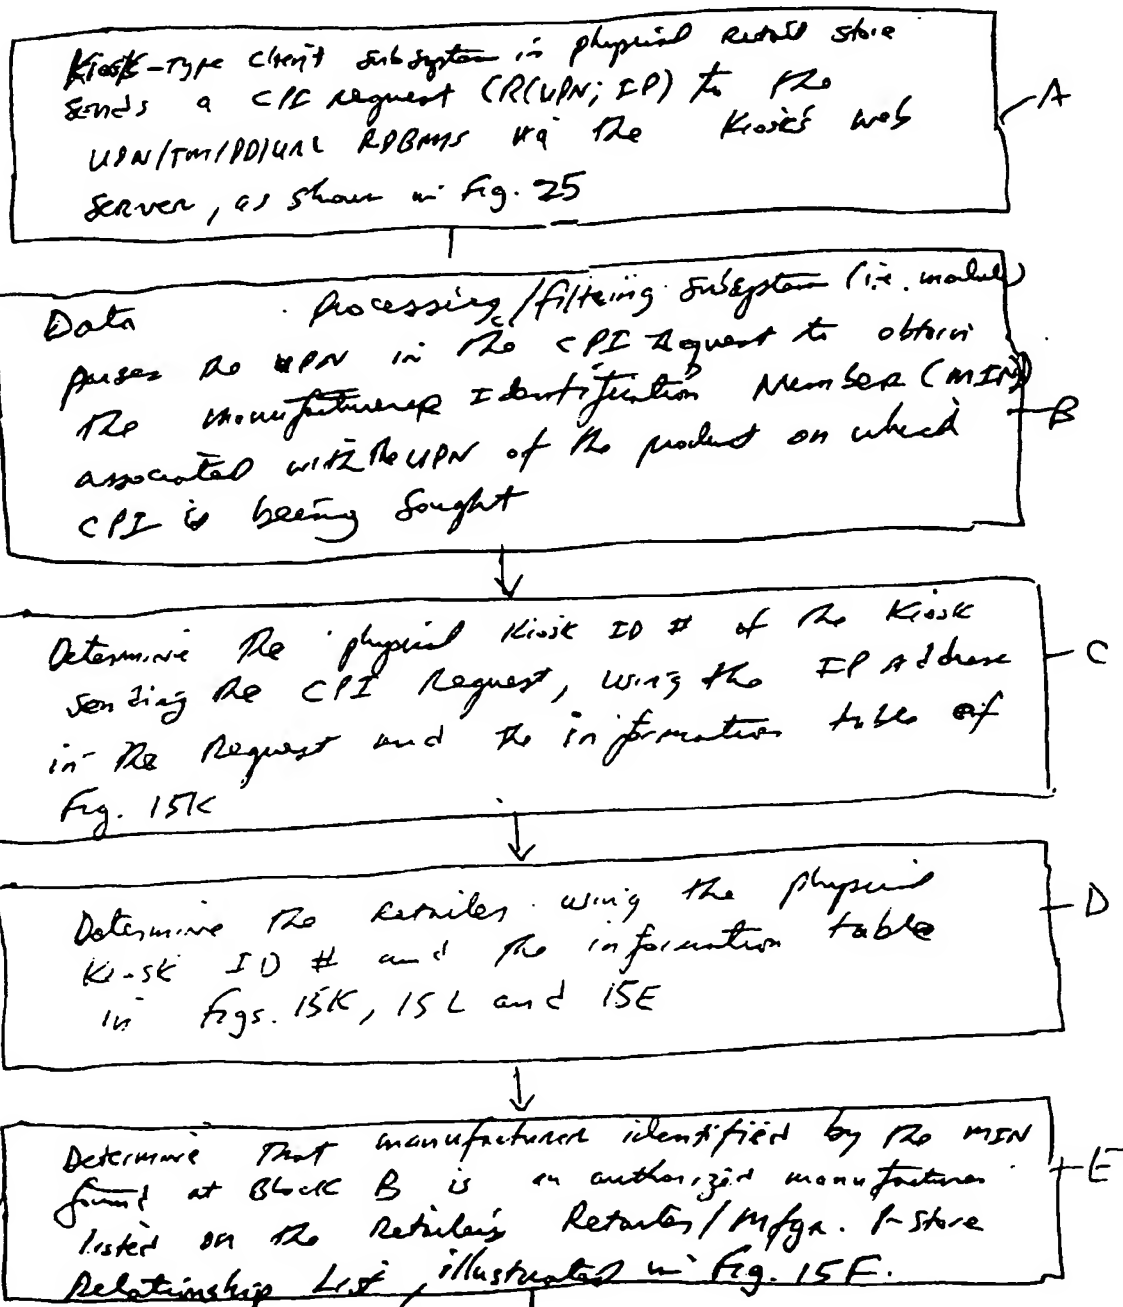 Kiosk-Type Client Subsystem in physical retail store
sends a CPI request (R(UPN; IP) to the
UPN/TM/PD/URL RDBMS via the Kiosk's web
server, as shown in Fig. 25
A
Data Processing/filtering Subsystem (i.e. module)
parses the UPN in the CPI request to obtain
the manufacturer Identification Number (MIN)
associated with the UPN of the product on which
CPI is being sought
B
Determine the physical Kiosk ID # of the Kiosk
sending the CPI Request, using the IP Address
in the Request and the information table of
Fig. 15K
C
Determine the retailer using the physical
Kiosk ID # and the information table
in Figs. 15K, 15L and 15E
D
Determine that manufacturer identified by the MIN
found at Block B is an authorized manufacturer
listed on the Retailer's Retailer/Mfgr. P-Store
Relationship List, illustrated in Fig. 15F.
E